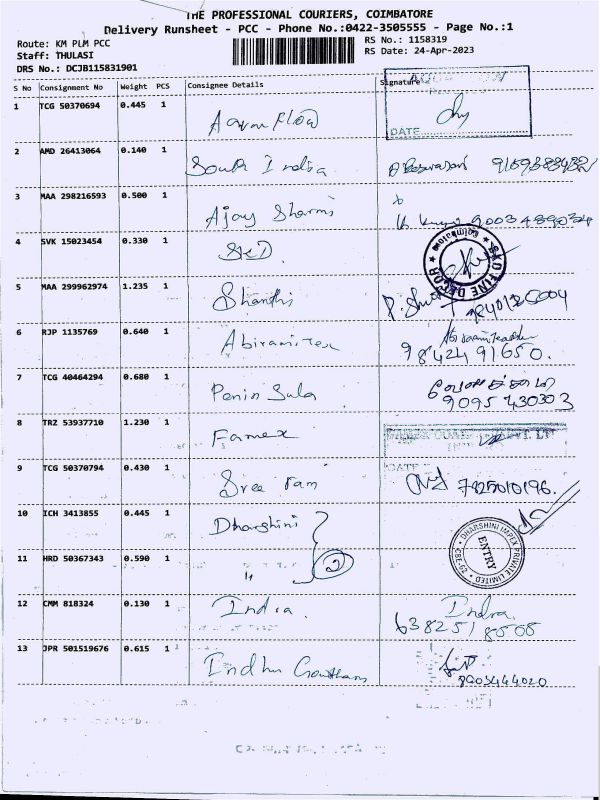 THE PROFESSIONAL COURIERS, COIMBATORE
Delivery Runsheet - PCC - Phone No.:0422-3505555 - Page No.:1
Route: KM PLM PCC
RS No.: 1158319
Staff: THULASI
RS Date: 24-Apr-2023
DRS No.: DCJB115831901
S No Consignment No Weight PCS Consignee Details Signature
1 TCG 50370694 0.445 1
DATE
2 AMD 26413064 0.140 1 South India
3 MAA 298216593 0.500 1 Ajay Sharmi
4 SVK 15023454 0.330 1 SKD
SKD FINE DECOR ★ Coimbatore ★
5 MAA 299962974 1.235 1 Shanthi
6 RJP 1135769 0.640 1 Abirami Tex
98424 91650.
7 TCG 40464294 0.680 1 Penin Sula
9095430303
8 TRZ 53937710 1.230 1 Famex
9 TCG 50370794 0.430 1 Sree ram
DATE
7825010196.
10 ICH 3413855 0.445 1 Dharshini
DHARSHINI IMPEX PRIVATE LIMITED • CBE-62 •
ENTRY
11 HRD 50367343 0.590 1 " 2
12 CMM 818324 0.130 1 Indra. Indra.
63825 18508
13 JPR 501519676 0.615 1 Indhu Gowtham
9003444020